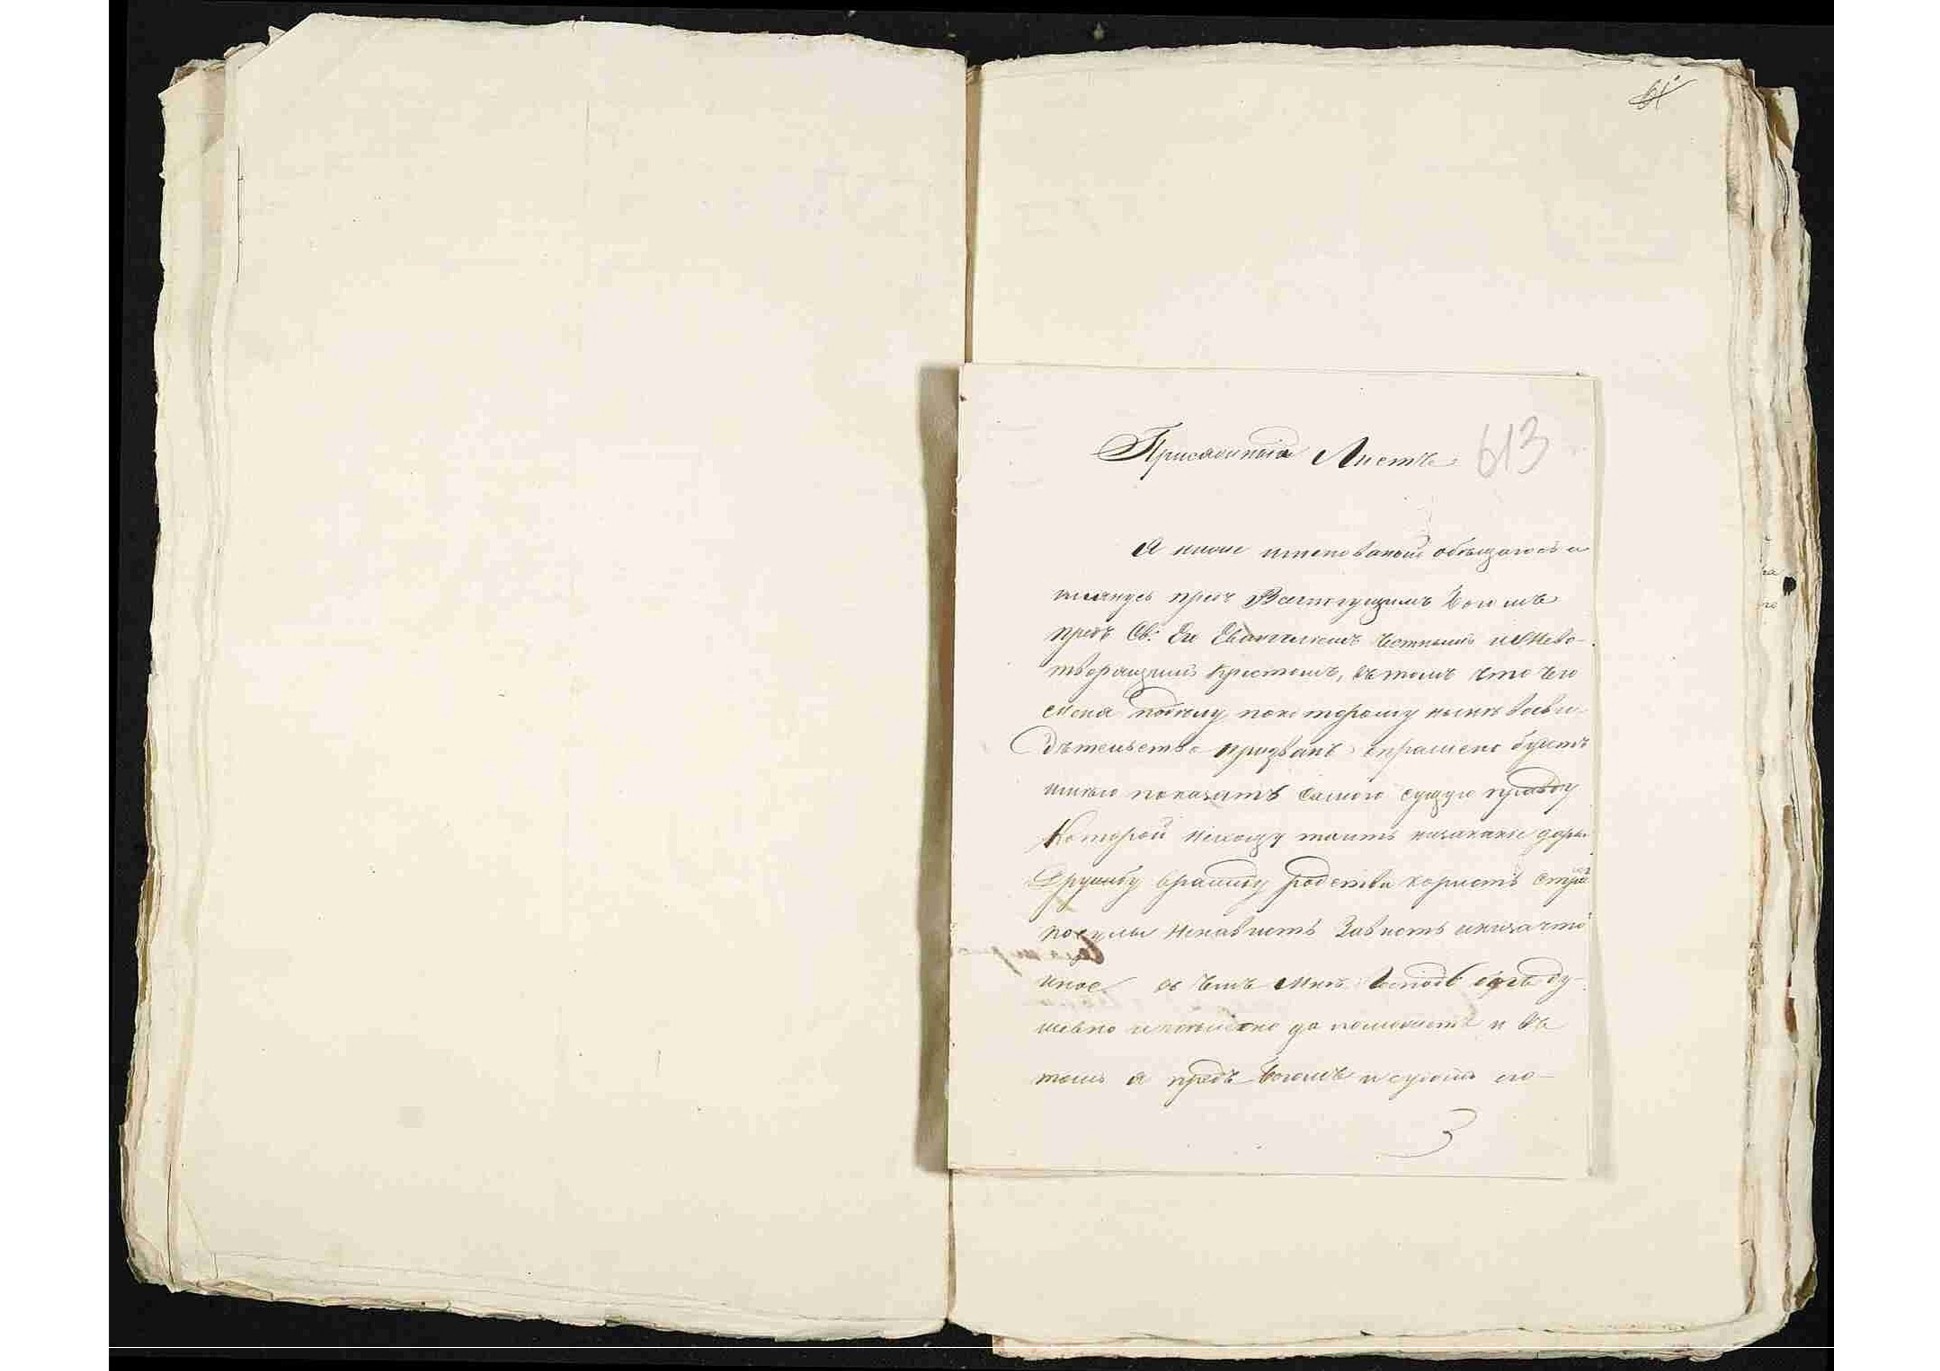 61
Присяжный Листъ 613
Я ниже именованный обѣщаюсь и
клянусь предъ Всемогущимъ Богомъ
предъ Св: Ею Евангелиемъ Честнымъ и Живо-
творящимъ Крестомъ, въ томъ что чего
меня подѣлу покоторому нынѣ восви-
дѣтельство призванъ спрашено будетъ
имѣю показать самою сущую правду
Которой немогу таить низакакие дары
Дружбу вражду родства корысть страхъ
посулы Ненависть Зависть инизачто
иное въ чемъ Мнѣ Господь Богъ ду-
шевно и тѣлесно да поможетъ и въ
томъ я предъ Богомъ и судомъ его
3